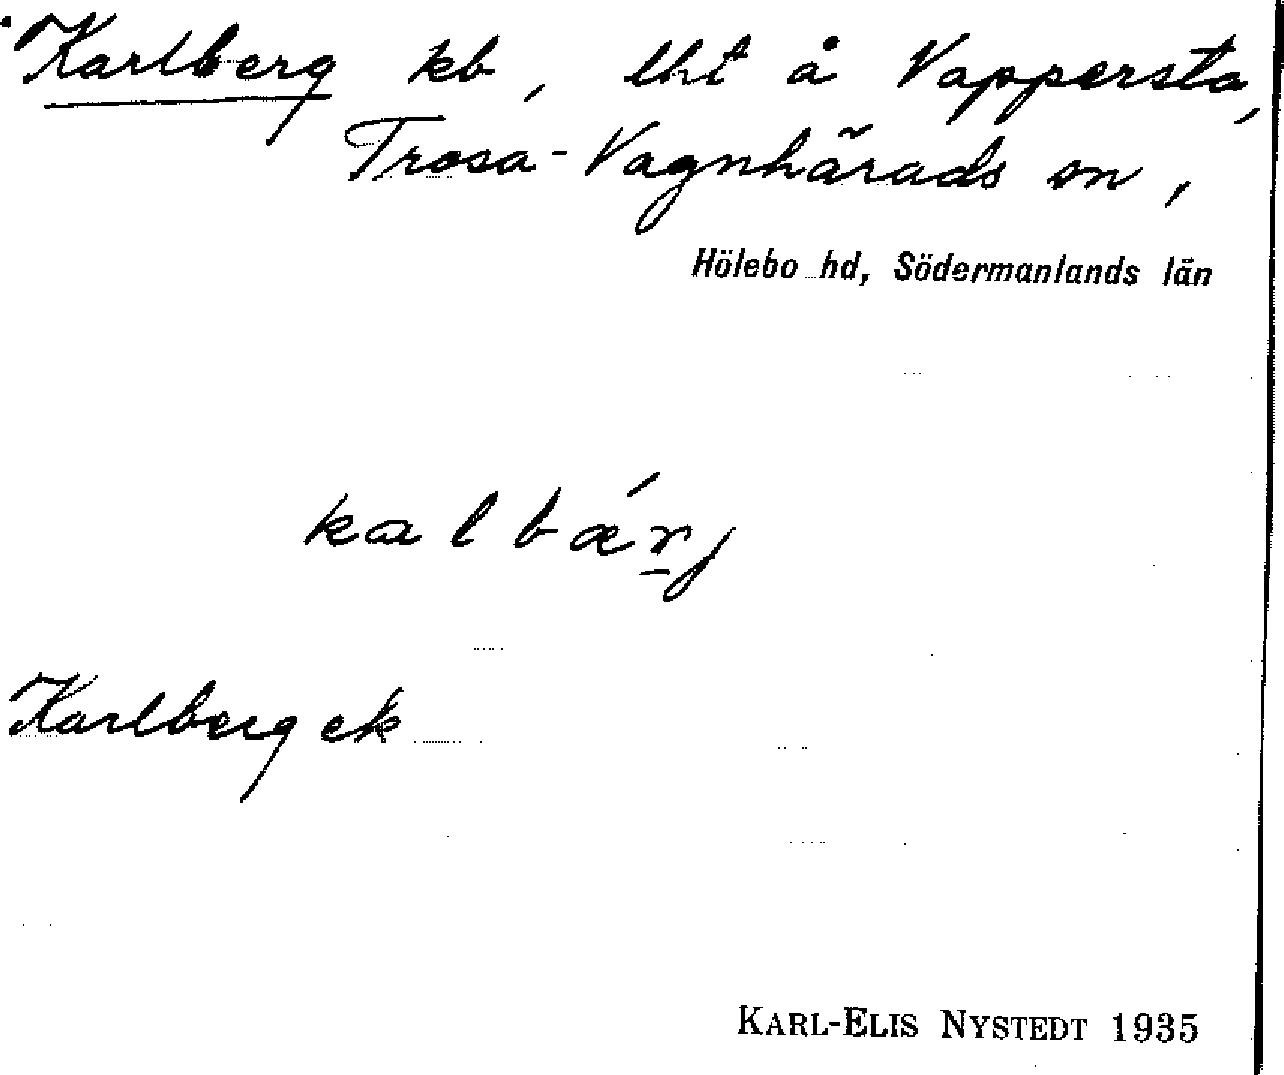 Karlberg kb, lht å Vappersta,
Trosa-Vagnhärads sn,
Hölebo hd, Södermanlands län
kalbǽr̲j
Karlberg ek
KARL-ELIS NYSTEDT 1935